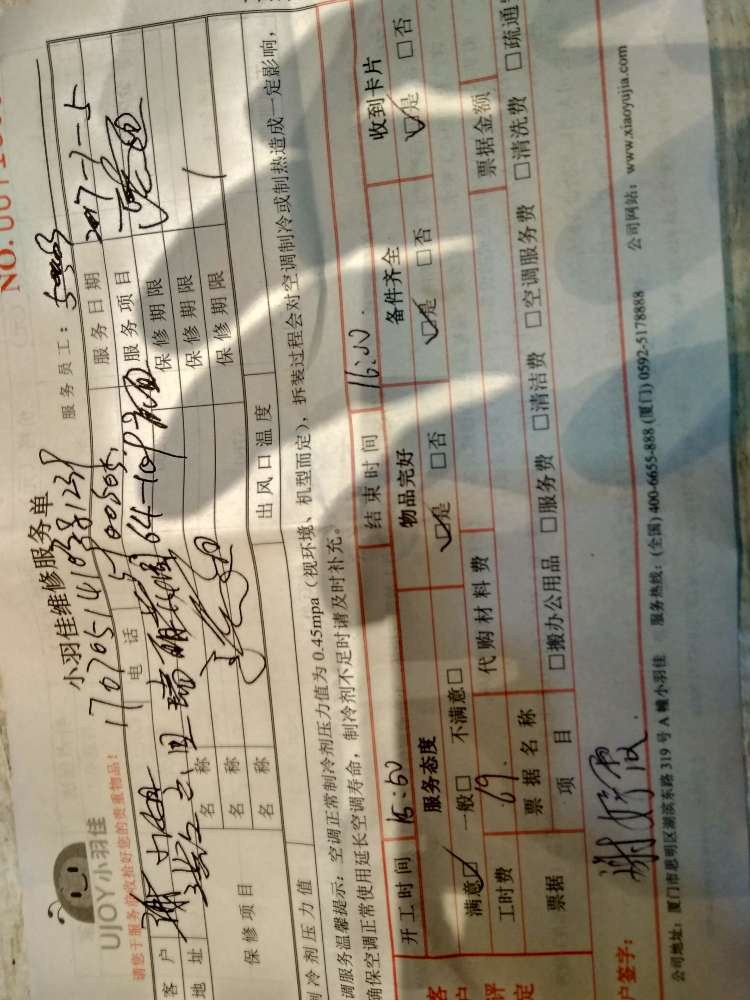 UJOY小羽佳
小羽佳维修服务单
NO.
请您于服务前收拾好您的贵重物品!
服务员工:
客户
电话
服务日期 2017-3-5
地址
服务项目
保修项目
名称
保修期限
名称
保修期限
名称
保修期限
制冷剂压力值
出风口温度
调服务温馨提示: 空调正常制冷剂压力值为0.45mpa(视环境、机型而定),拆装过程会对空调制冷或制热造成一定影响,
确保空调正常使用延长空调寿命,制冷剂不足时请及时补充。
开工时间
结束时间 16:00
客户评定
服务态度
物品完好
备件齐全
收到卡片
满意☑ 一般☐ 不满意☐
☑是 ☐否
☑是 ☐否
☑是 ☐否
工时费 69.
代购材料费
票据金额
票据
票据名称
项目
☐搬办公用品 ☐服务费 ☐清洁费 ☐空调服务费 ☐清洗费 ☐疏通
户签字:
公司地址: 厦门市思明区湖滨东路319号A幢小羽佳 服务热线: (全国) 400-6655-888 (厦门) 0592-5178888 公司网站: www.xiaoyujia.com